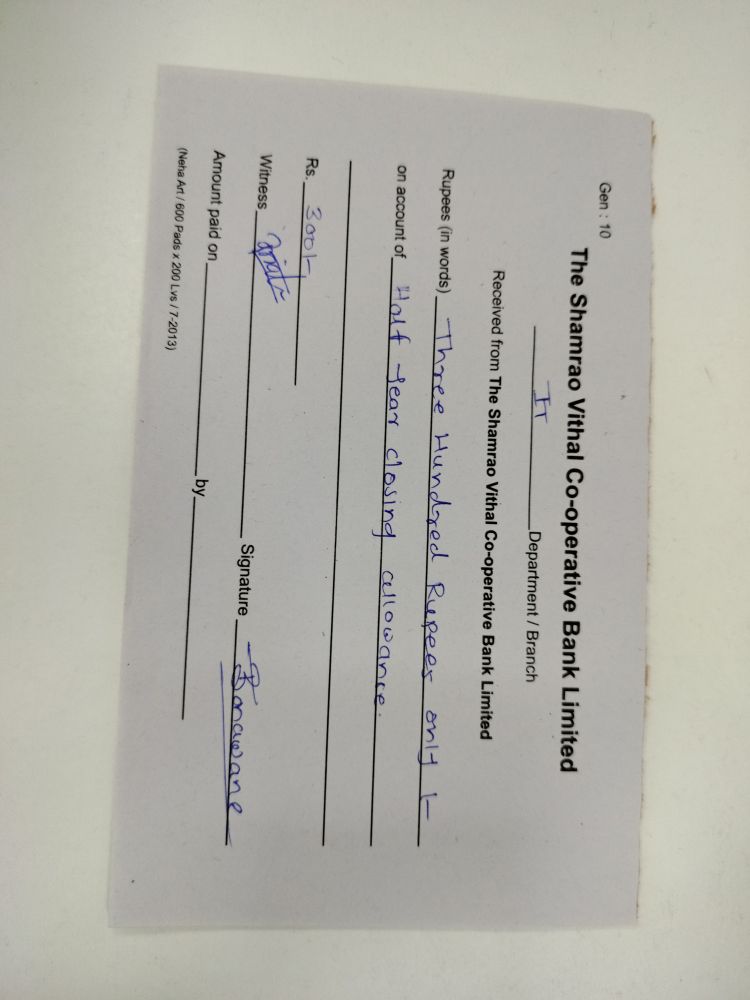 Gen : 10
The Shamrao Vithal Co-operative Bank Limited
IT Department / Branch
Received from The Shamrao Vithal Co-operative Bank Limited
Rupees (in words) Three Hundred Rupees only /-
on account of Half year closing allowance.
Rs. 300/-
Witness Signature Sonawane
Amount paid on by
(Neha Art / 600 Pads x 200 Lvs / 7-2013)